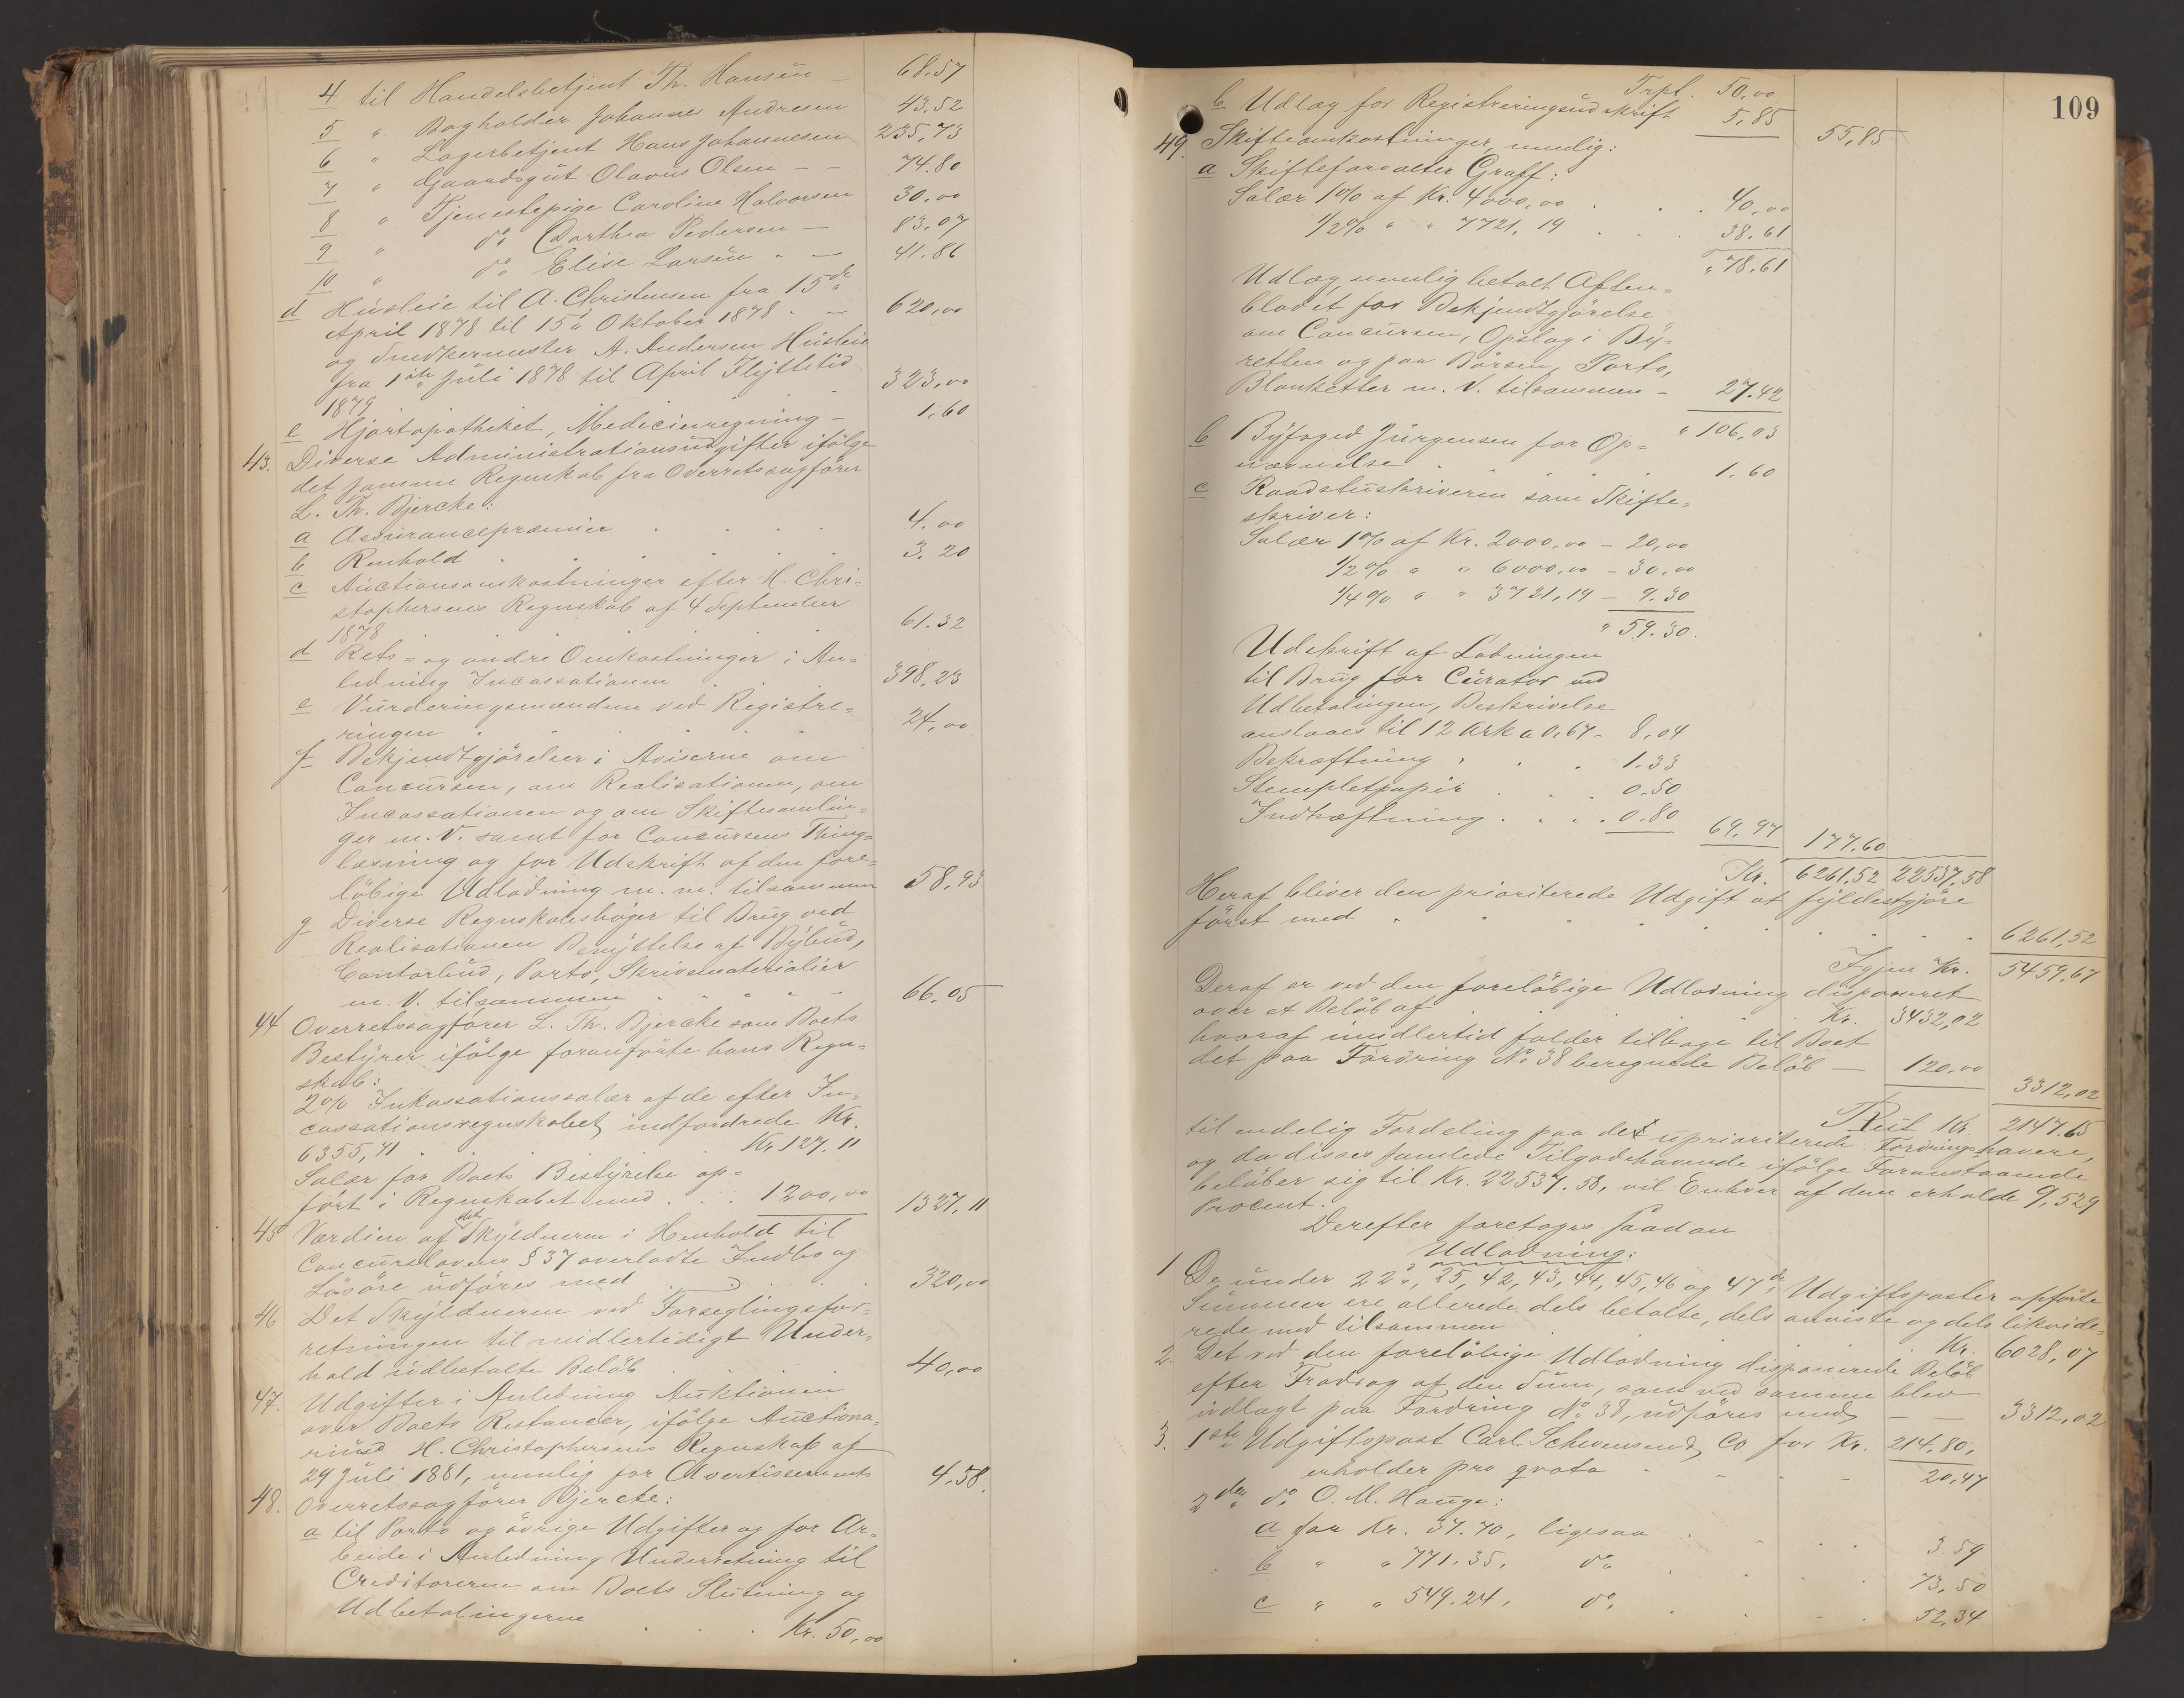 4 til Handelsbetjent Th. Hansen — 68.57
5 " Bogholder Johannes Andresen 43.52
6 " Lagerbetjent Hans Johannesen 235,73
7 " Gaardsgut Olavus Olsen — — 74.80
8 " Tjenestepige Caroline Halvorsen 30,00
9 " do Dorthea Pedersen — 83.07
10 " do Elise Larsen " — 41.86
d Husleie til A. Christensen fra 15de
April 1878 til 15d Oktober 1878 . — 620,00
og Snedkermester A. Andersen Husleie
fra 1ste Juli 1878 til April Flyttetid
1879 . . . 323,00
e Hjortapotheket, Medicinregning — 1.60
43. Diverse Administrationsudgifter ifølge
det samme Regnskab fra Overretssagfører
L. Th. Bjercke:
a Assurancepræmier . . . . 4.00
b Renhold . . . . . 3.20
c Auctionsomkostninger efter H. Chri-
stophersens Regnskab af 4 September
1878 . . . . 61.32
d Rets- og andre Omkostninger i An-
ledning Incassationen . . 398,23
e Vurderingsmændene ved Registre-
ringen . . . . 24,00
f Bekjendtgjørelser i Aviserne om
Concursen, om Realisationen, om
Incassationen og om Skiftesamlin-
ger m. V. samt for Concursens Thing-
læsning og for Udskrift af den fore-
løbige Udlodning m. m. tilsammen 58,93
g Diverse Regnskabsbøger til Brug ved
Realisationen Benyttelse af Bybud,
Contorbud, Porto, Skrivematerialier
m. V. tilsammen . . . . 66,05
44 Overretssagfører L. Th. Bjercke som Boets
Bestyrer ifølge foranførte hans Regn-
skab:
2% Inkassationssalær af de efter In-
cassationsregnskabet indfordrede Kr.
6355,41 . . . Kr. 127.11
Salær for Boets Bestyrelse op-
ført i Regnskabet med . . . 1200,00 1327,11
45 Værdien af det Skyldneren i Henhold til
Concurslovens § 37 overladte Indbo og
Løsøre udføres med . . . 320,00
46 Det Skyldneren ved Forseglingsfor-
retningen til midlertidigt Under-
hold udbetalte Beløb . . . 40,00
47. Udgifter i Anledning Auktionen
over Boets Restancer, ifølge Auctiona-
rius H. Christophersens Regnskab af
29 Juli 1881, nemlig for Avertissements 4.58.
48. Overretssagfører Bjercke:
a til Porto og øvrige Udgifter og for Ar-
beide i Anledning Underretning til
Creditorerne om Boets Slutning og
Udbetalingerne . . . Kr. 50,00
109
Trpt. 50,00
b Udlæg for Registreringsudskrift 5,85 55,85
49. Skifteomkostninger, nemlig:
a Skifteforvalter Graff:
Salær 1% af Kr. 4000,00 . . . 40,00
1/2% " " 7721,19 . . . 38.61
" 78,61
Udlæg, nemlig betalt Aften-
bladet for Bekjendtgjørelse
om Concursen, Opslag i By-
retten og paa Børsen, Porto,
Blanketter m. V. tilsammen — 27.42
" 106,03
b Byfoged Jürgensen for Op-
nævnelse . . . . . 1.60
c Raadstuskriveren som Skifte-
skriver:
Salær 1% af Kr. 2000,00 — 20,00
1/2% " " 6000,00 — 30,00
1/4% " " 3721,19 — 9.30
" 59.30.
Udskrift af Lodningen
til Brug for Curator ved
Udbetalingen, Beskrivelse
anslaaes til 12 Ark a 0,67 — 8,04
Bekræftning . . . 1.33
Stempletpapir . . . 0.50
Indhæftning . . . . 0.80 69,97 177.60
Kr. 6261,52 22537,58
Heraf bliver den prioriterede Udgift at fyldestgjøre
først med . . . . . . . 6261,52
Igjen Kr. 5459,67
Deraf er ved den foreløbige Udlodning disponeret
over et Beløb af . . . Kr. 3432,02
hvoraf imidlertid falder tilbage til Boet
det paa Fordring No 38 beregnede Beløb — 120,00
3312,02
Rest Kr. 2147.65
til endelig Fordeling paa de uprioriterede Fordringshavere,
og da disses samlede Tilgodehavende ifølge Foranstaaende
beløber sig til Kr. 22537.58, vil Enhver af dem erholde 9,529
Procent.
Derefter foretoges saadan
Udlodning:
1 De under 22d, 25, 42, 43, 44, 45, 46 og 47de Udgiftsposter opførte
Summer ere allerede dels betalte, dels anviste og dels likvide-
rede med tilsammen . . . Kr. 6028,07
2. Det ved den foreløbige Udlodning disponerede Beløb
efter Fradrag af den Sum, som ved samme blev
udlagt paa Fordring No 38, udføres med — — 3312,02
3. 1ste Udgiftspost Carl Schwensen & Co for Kr. 214,80,
erholder pro qvota . . . . 20,47
2den do O. M. Hauge:
a for Kr. 37.70, ligesaa . . . 3.59
b " " 771.35, do . . . 73,50
c " " 549.24, do . . . 52,34